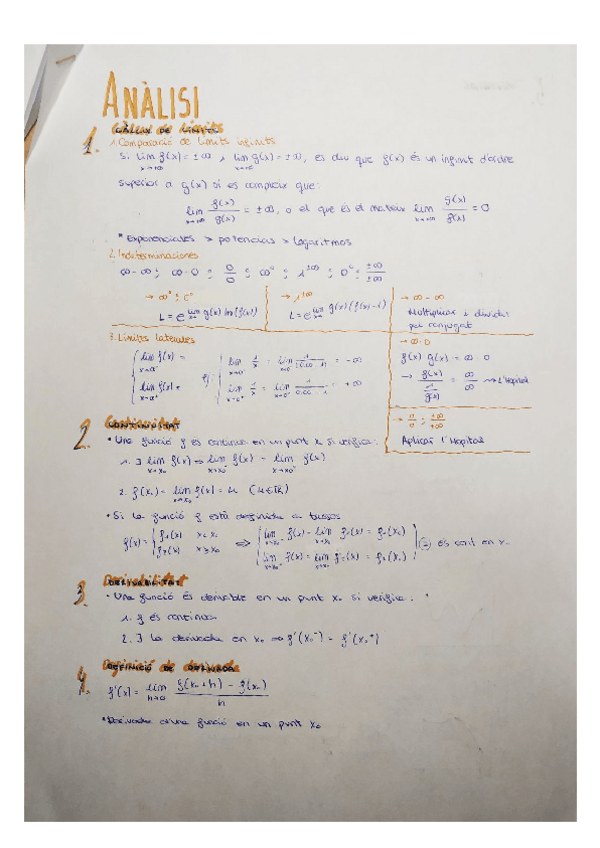 ANÀLISI
1. CÀLCUL DE LÍMITS
1. Comparació de límits infinits
Si lim f(x) = ±∞ i lim g(x) = ±∞, es diu que f(x) és un infinit d'ordre
x→+∞ x→+∞
superior a g(x) si es compleix que:
lim f(x)/g(x) = ±∞, o el que és el mateix lim g(x)/f(x) = 0
* Exponenciales > potencias > logaritmos
2. Indeterminaciones
∞-∞ ; ∞·0 ; 0/0 ; ∞⁰ ; 1^±∞ ; 0⁰ ; ±∞/±∞
→ ∞⁰ ; 0⁰
L = e^lim g(x) ln(f(x))
→ 1^±∞
L = e^lim g(x)(f(x)-1)
→ ∞ - ∞
Multiplicar i dividir
pel conjugat
3. Límites laterales
lim f(x) =
x→0⁻
lim f(x) =
x→0⁺
lim 1/x = lim = -∞
lim 1/x = lim = +∞
→ ∞·0
f(x)·g(x) = ∞·0
→ f(x)/(1/g(x)) = ∞/∞ → L'Hopital
→ 0/0 ; ±∞/±∞
Aplicar l'Hopital
2. CONTINUITAT
• Una funció f és contínua en un punt x₀ si verifica:
1. ∃ lim f(x) ⇒ lim f(x) = lim f(x)
x→x₀ x→x₀⁻ x→x₀⁺
2. f(x₀) = lim f(x) = k (k∈ℝ)
x→x₀
• Si la funció f està definida a trossos
f(x) = { f₁(x) x<x₀ ⇔ { lim f(x) = lim f₁(x) = f₁(x₀)
f₂(x) x≥x₀ lim f(x) = lim f₂(x) = f₂(x₀) } (=) és cont en x₀
3. DERIVABILITAT
• Una funció és derivable en un punt x₀ si verifica:
1. f és contínua
2. ∃ la derivada en x₀ ⇒ f'(x₀⁻) = f'(x₀⁺)
4. DEFINICIÓ DE DERIVADA
f'(x) = lim (f(x₀+h) - f(x₀))/h
h→0
• Derivada d'una funció en un punt x₀